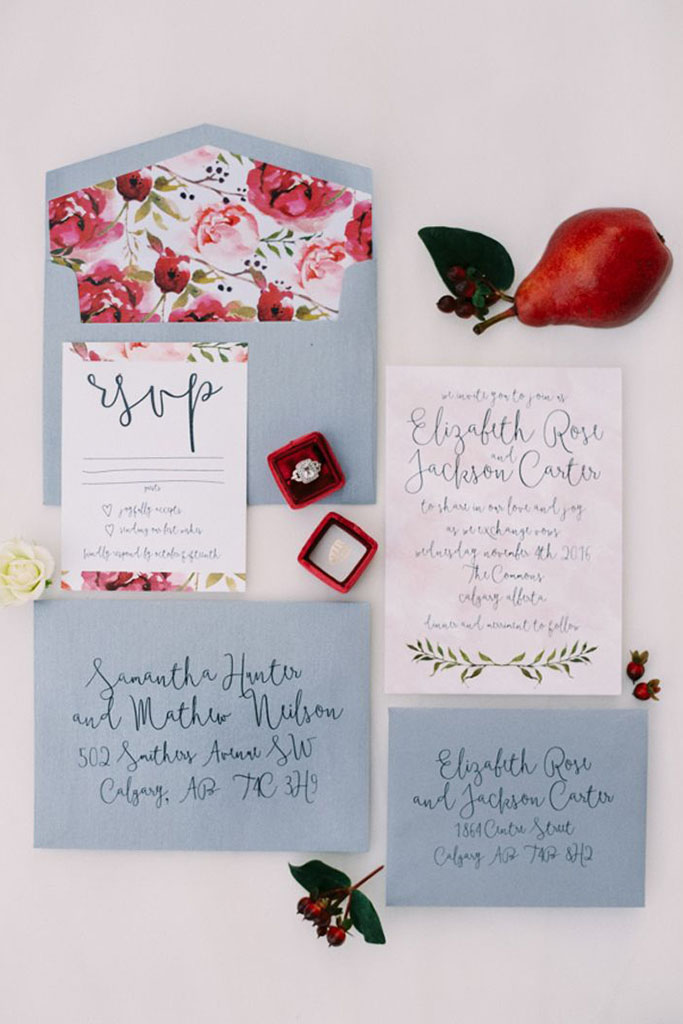 rsvp
guests
joyfully accepts
sending our best wishes
kindly respond by october fifteenth
we invite you to join us
Elizabeth Rose
and
Jackson Carter
to share in our love and joy
as we exchange vows
wednesday november 4th 2016
The Commons
calgary alberta
dinner and merriment to follow
Samantha Hunter
and Mathew Neilson
502 Smithers Avenue SW
Calgary, AB T4C 3H9
Elizabeth Rose
and Jackson Carter
1864 Centre Street
Calgary AB T4P 8H2